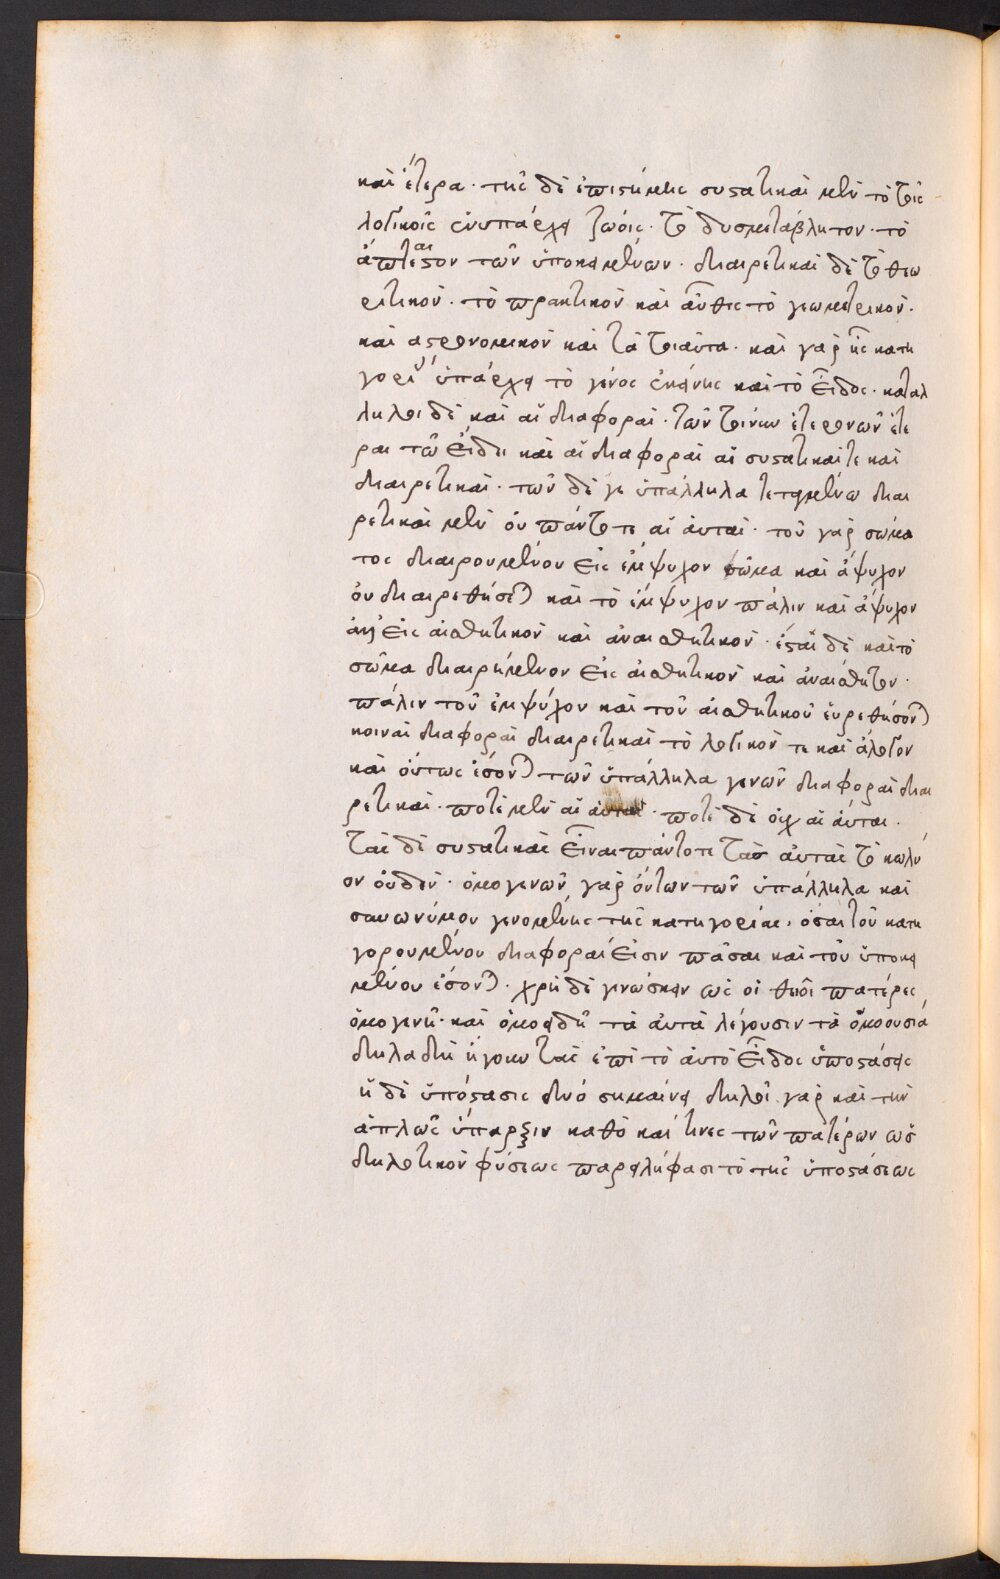 καὶ ἕτερα· τῆς δὲ ἐπιστήμης συστατικαὶ μὲν τὸ τοῖς
λογικοῖς ἐνυπάρχειν ζώοις· τὸ δυσμετάβλητον· τὸ
ἄπταιστον τῶν ὑποκειμένων· διαιρετικαὶ δὲ τὸ θεω
ρητικὸν· τὸ πρακτικὸν καὶ αὖθις τὸ γεωμετρικὸν·
καὶ αστρονομικὸν καὶ τὰ τοιαῦτα· καὶ γὰρ ἧς κατη
γορεῖν ὑπάρχει τὸ γένος ἐκείνης καὶ τὸ εἶδος· καταλ
ληλοι δὲ καὶ αἱ διαφοραὶ· τῶν τοίνυν ἑτερογενῶν ἕτε
ραι τῶ εἴδει καὶ αἱ διαφοραὶ αἱ συστατικαί τε καὶ
διαιρετικαὶ· τῶν δέ γε ὑπάλληλα τεταγμένων διαι
ρετικαὶ μὲν οὐ πάντοτε αἱ αὐταὶ· τοῦ γὰρ σώμα
τος διαιρουμένου εἰς ἔμψυχον σῶμα καὶ ἄψυχον
οὐ διαιρεθήσεται καὶ τὸ ἔμψυχον πάλιν καὶ ἄψυχον
ἀλλ' εἰς αἰσθητικὸν καὶ ἀναισθητικὸν· ἔσται δὲ καὶ τὸ
σῶμα διαιρούμενον εἰς αἰσθητικὸν καὶ ἀναίσθητον·
πάλιν τοῦ ἐμψύχου καὶ τοῦ αἰσθητικοῦ εὑρεθήσονται
κοιναὶ διαφοραὶ διαιρετικαὶ τὸ λογικόν τε καὶ ἄλογον
καὶ οὕτως ἔσονται τῶν ὑπάλληλα γενῶν διαφοραὶ διαι
ρετικαὶ· ποτὲ μὲν αἱ αὐταὶ· ποτὲ δὲ οὐχ αἱ αὐται·
τὰς δὲ συστατικὰς εἶναι πάντοτε τὰς αὐτὰς τὸ κωλύ
ον οὐδὲν· ὁμογενῶν γὰρ ὄντων τῶν ὑπάλληλα καὶ
συνωνύμου γενομένης τῆς κατηγορίας, ὅσαι τοῦ κατη
γορουμένου διαφοραί εἰσιν πᾶσαι καὶ τοῦ ὑποκει
μένου ἔσονται· χρὴ δὲ γινώσκειν ὡς οἱ θεῖοι πατέρες
ὁμογενῆ· καὶ ὁμοειδῆ τὰ αὐτὰ λέγουσιν τὰ ὁμοουσιά
δηλαδὴ ἤγουν τὰς ὑπὸ τὸ αὐτὸ εἶδος ὑποστάσεις
ἡ δὲ ὑπόστασις δύο σημαίνει δηλοῖ γὰρ καὶ τὴν
ἁπλῶς ὕπαρξιν καθὸ καί τινες τῶν πατέρων ὡς
δηλοτικὸν φύσεως παρειλήφασι τὸ τῆς ὑποστάσεως